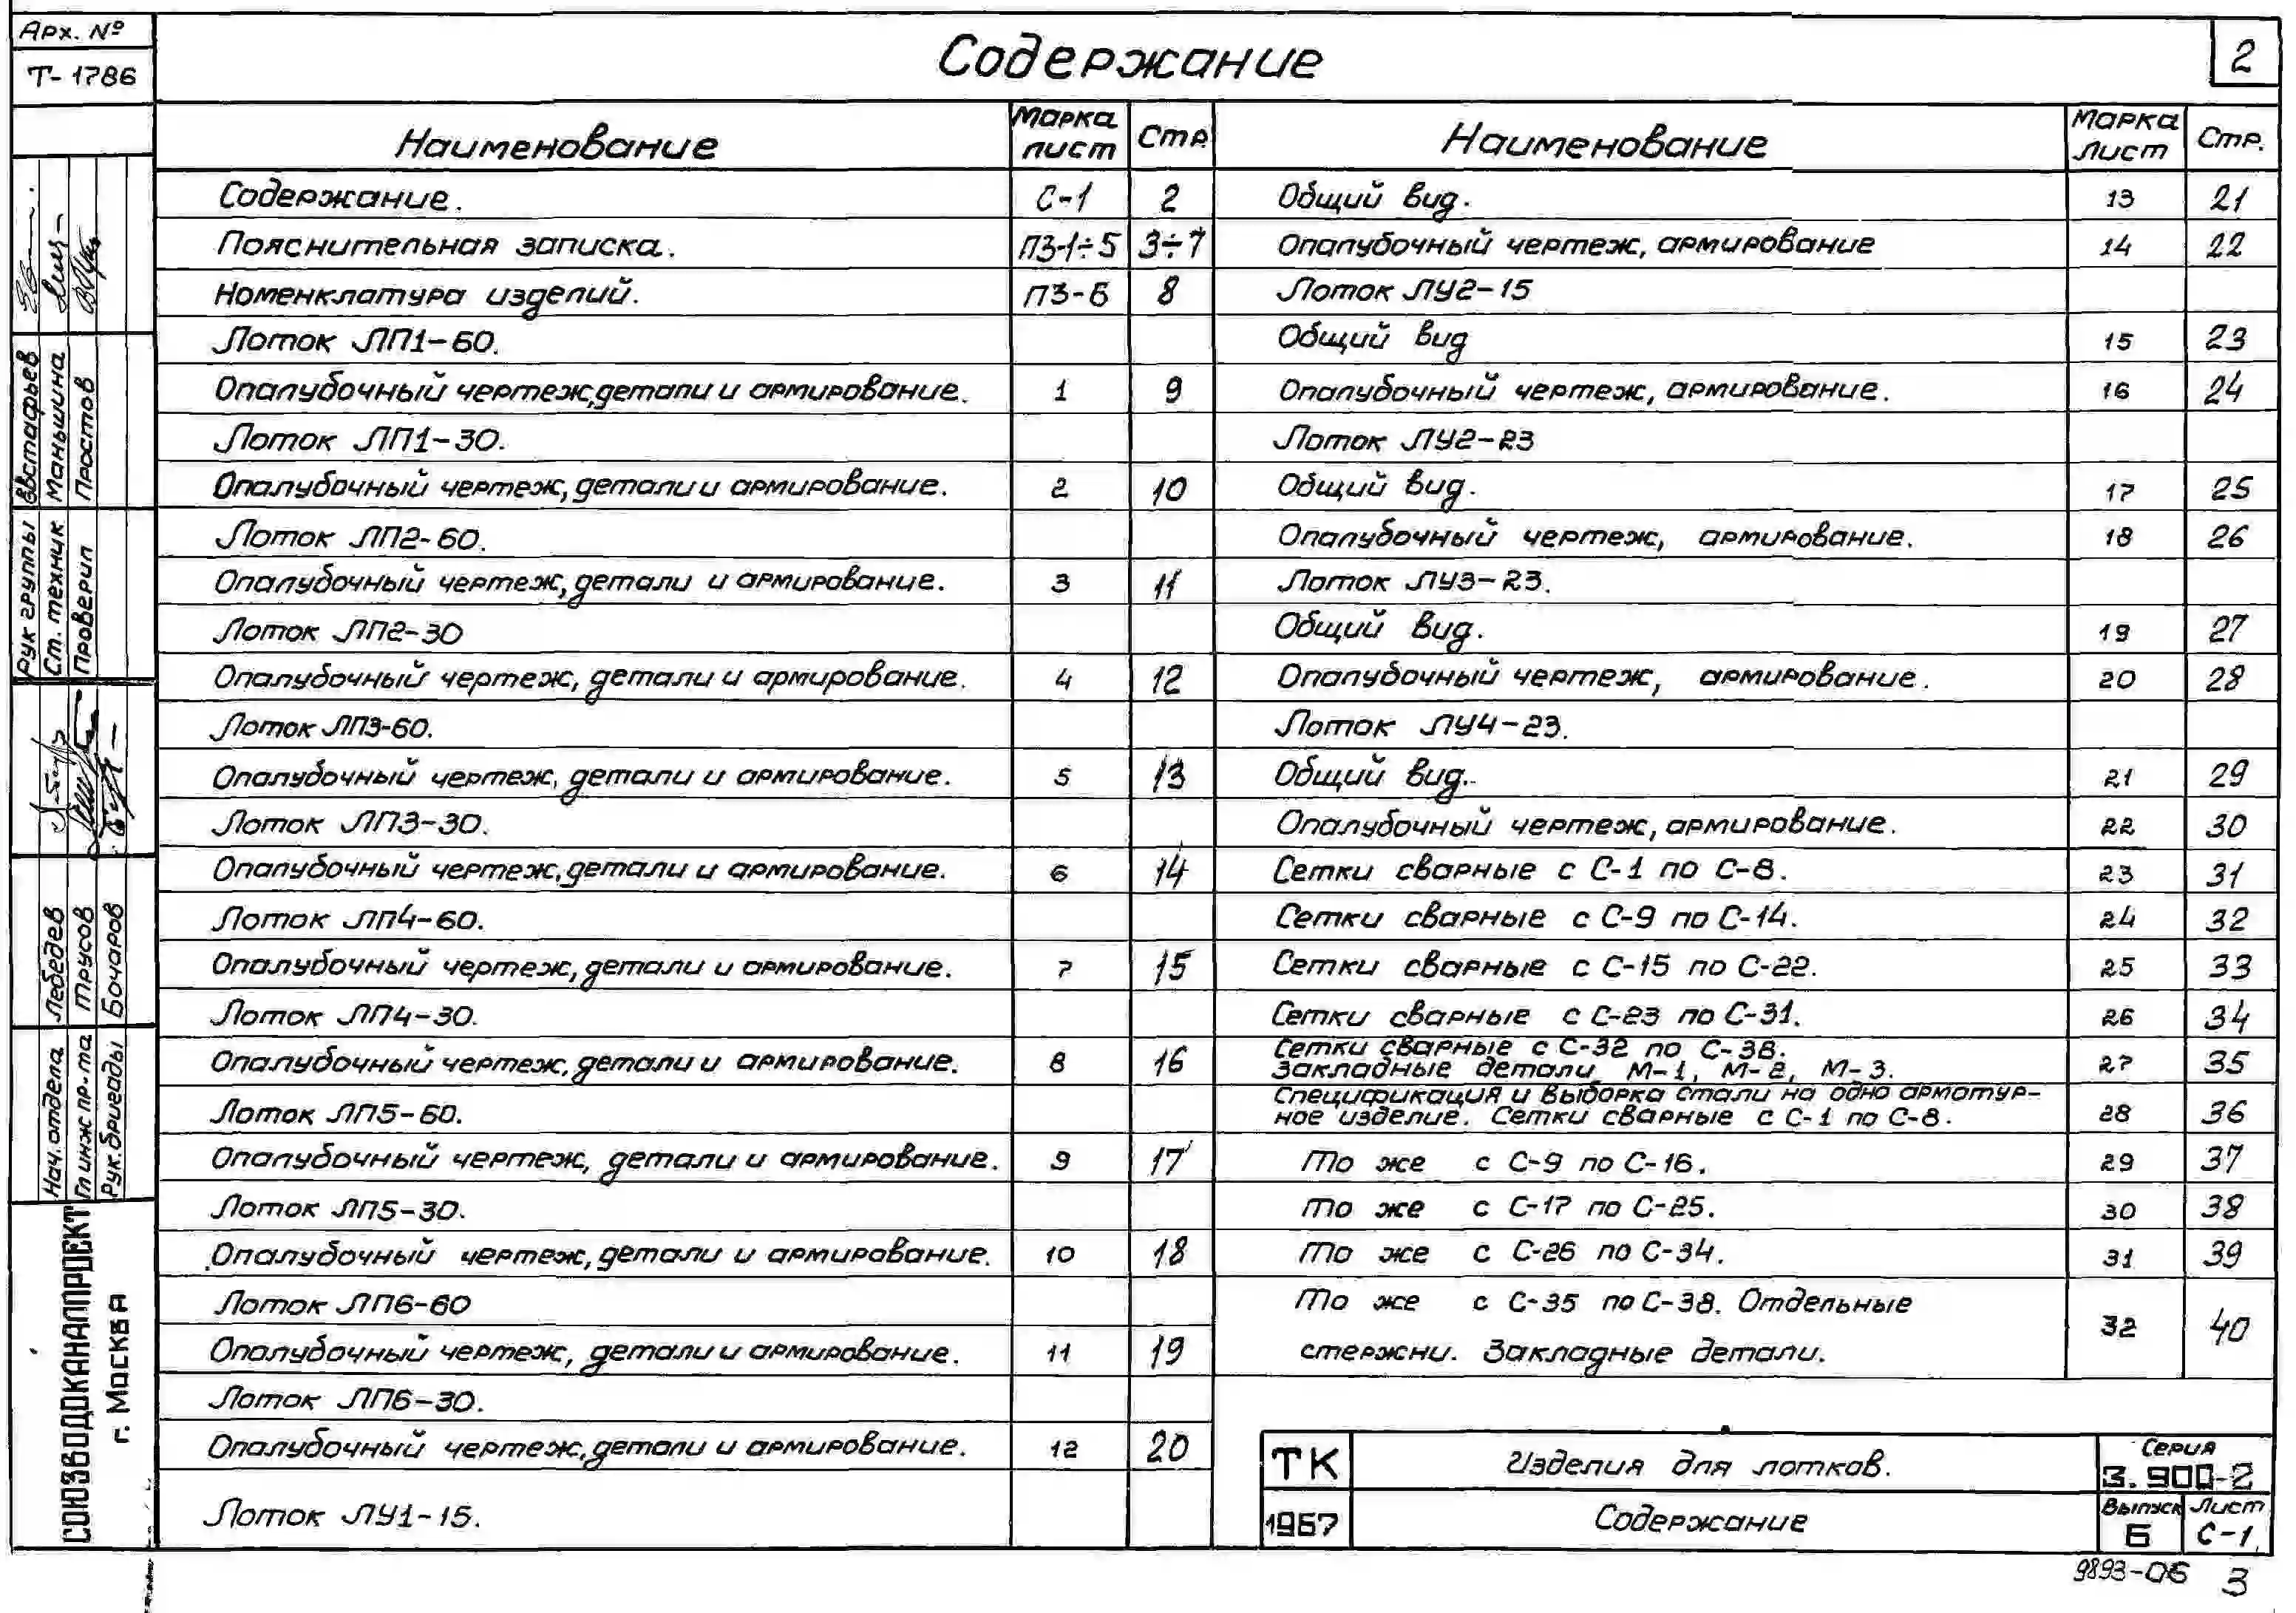 Арх. №
Т-1786
Содержание
2
Наименование
Марка лист
Стр.
Содержание. С-1 2
Пояснительная записка. ПЗ-1÷5 3÷7
Номенклатура изделий. ПЗ-6 8
Лоток ЛП1-60.
Опалубочный чертеж, детали и армирование. 1 9
Лоток ЛП1-30.
Опалубочный чертеж, детали и армирование. 2 10
Лоток ЛП2-60.
Опалубочный чертеж, детали и армирование. 3 11
Лоток ЛП2-30
Опалубочный чертеж, детали и армирование. 4 12
Лоток ЛП3-60.
Опалубочный чертеж, детали и армирование. 5 13
Лоток ЛП3-30.
Опалубочный чертеж, детали и армирование. 6 14
Лоток ЛП4-60.
Опалубочный чертеж, детали и армирование. 7 15
Лоток ЛП4-30.
Опалубочный чертеж, детали и армирование. 8 16
Лоток ЛП5-60.
Опалубочный чертеж, детали и армирование. 9 17
Лоток ЛП5-30.
Опалубочный чертеж, детали и армирование. 10 18
Лоток ЛП6-60
Опалубочный чертеж, детали и армирование. 11 19
Лоток ЛП6-30.
Опалубочный чертеж, детали и армирование. 12 20
Лоток ЛУ1-15.
Наименование
Марка Лист
Стр.
Общий вид. 13 21
Опалубочный чертеж, армирование 14 22
Лоток ЛУ2-15
Общий вид 15 23
Опалубочный чертеж, армирование. 16 24
Лоток ЛУ2-23
Общий вид. 17 25
Опалубочный чертеж, армирование. 18 26
Лоток ЛУ3-23.
Общий вид. 19 27
Опалубочный чертеж, армирование. 20 28
Лоток ЛУ4-23.
Общий вид. 21 29
Опалубочный чертеж, армирование. 22 30
Сетки сварные с С-1 по С-8. 23 31
Сетки сварные с С-9 по С-14. 24 32
Сетки сварные с С-15 по С-22. 25 33
Сетки сварные с С-23 по С-31. 26 34
Сетки сварные с С-32 по С-38.
Закладные детали М-1, М-2, М-3. 27 35
Спецификация и выборка стали на одно арматур-
ное изделие. Сетки сварные с С-1 по С-8. 28 36
То же с С-9 по С-16. 29 37
То же с С-17 по С-25. 30 38
То же с С-26 по С-34. 31 39
То же с С-35 по С-38. Отдельные
стержни. Закладные детали. 32 40
Рук группы Евстафьев
Ст. техник Маньшина
Проверил Простов
Нач. отдела Лебедев
Гл инж пр-та Трусов
Рук. бригады Бочаров
СОЮЗВОДОКАНАЛПРОЕКТ
г. Москва
ТК
1967
Изделия для лотков.
Содержание
Серия
3.900-2
Выпуск
6
Лист
С-1
9893-06 3